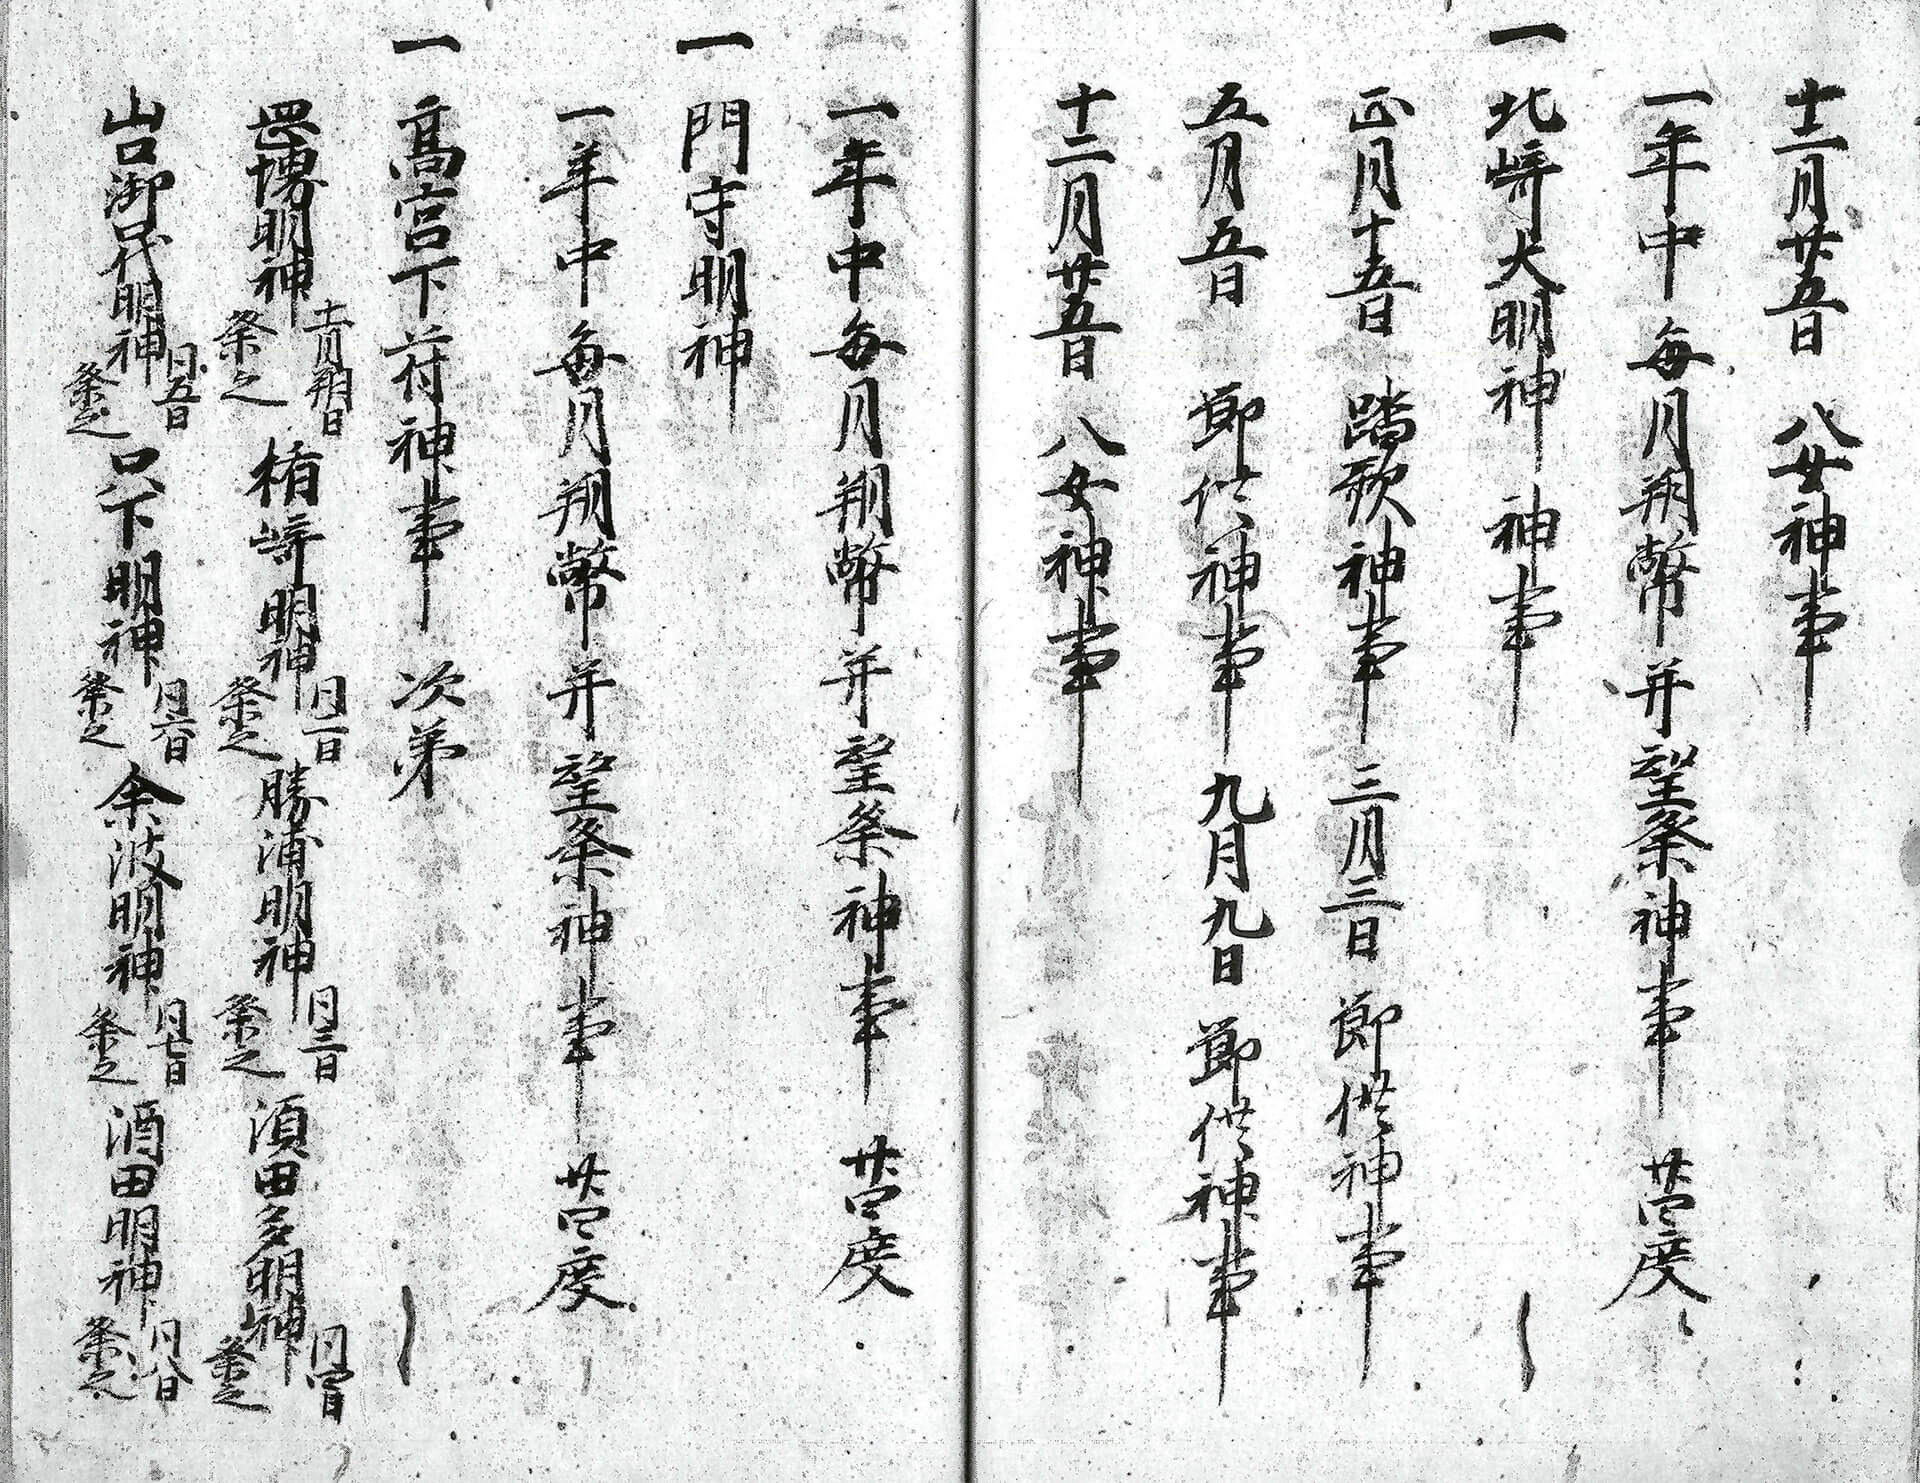 十二月廿五日　八女神事
一年中毎月朔幣并望祭神事　廿四度
一　北崎大明神　神事
正月十五日　踏歌神事　三月三日　節供神事
五月五日　節供神事　九月九日　節供神事
十二月廿五日　八女神事
一年中毎月朔幣并望祭神事　廿四度
一　門守明神
一年中毎月朔幣并望祭神事　廿四度
一　高宮下符神事　次第
明神 十一月朔日祭之 楯崎明神 同二日祭之 勝浦明神 同三日祭之 須田多明神 同四日祭之
山口御代明神 同五日祭之 只下明神 同六日祭之 余波明神 同七日祭之 酒田明神 同八日祭之